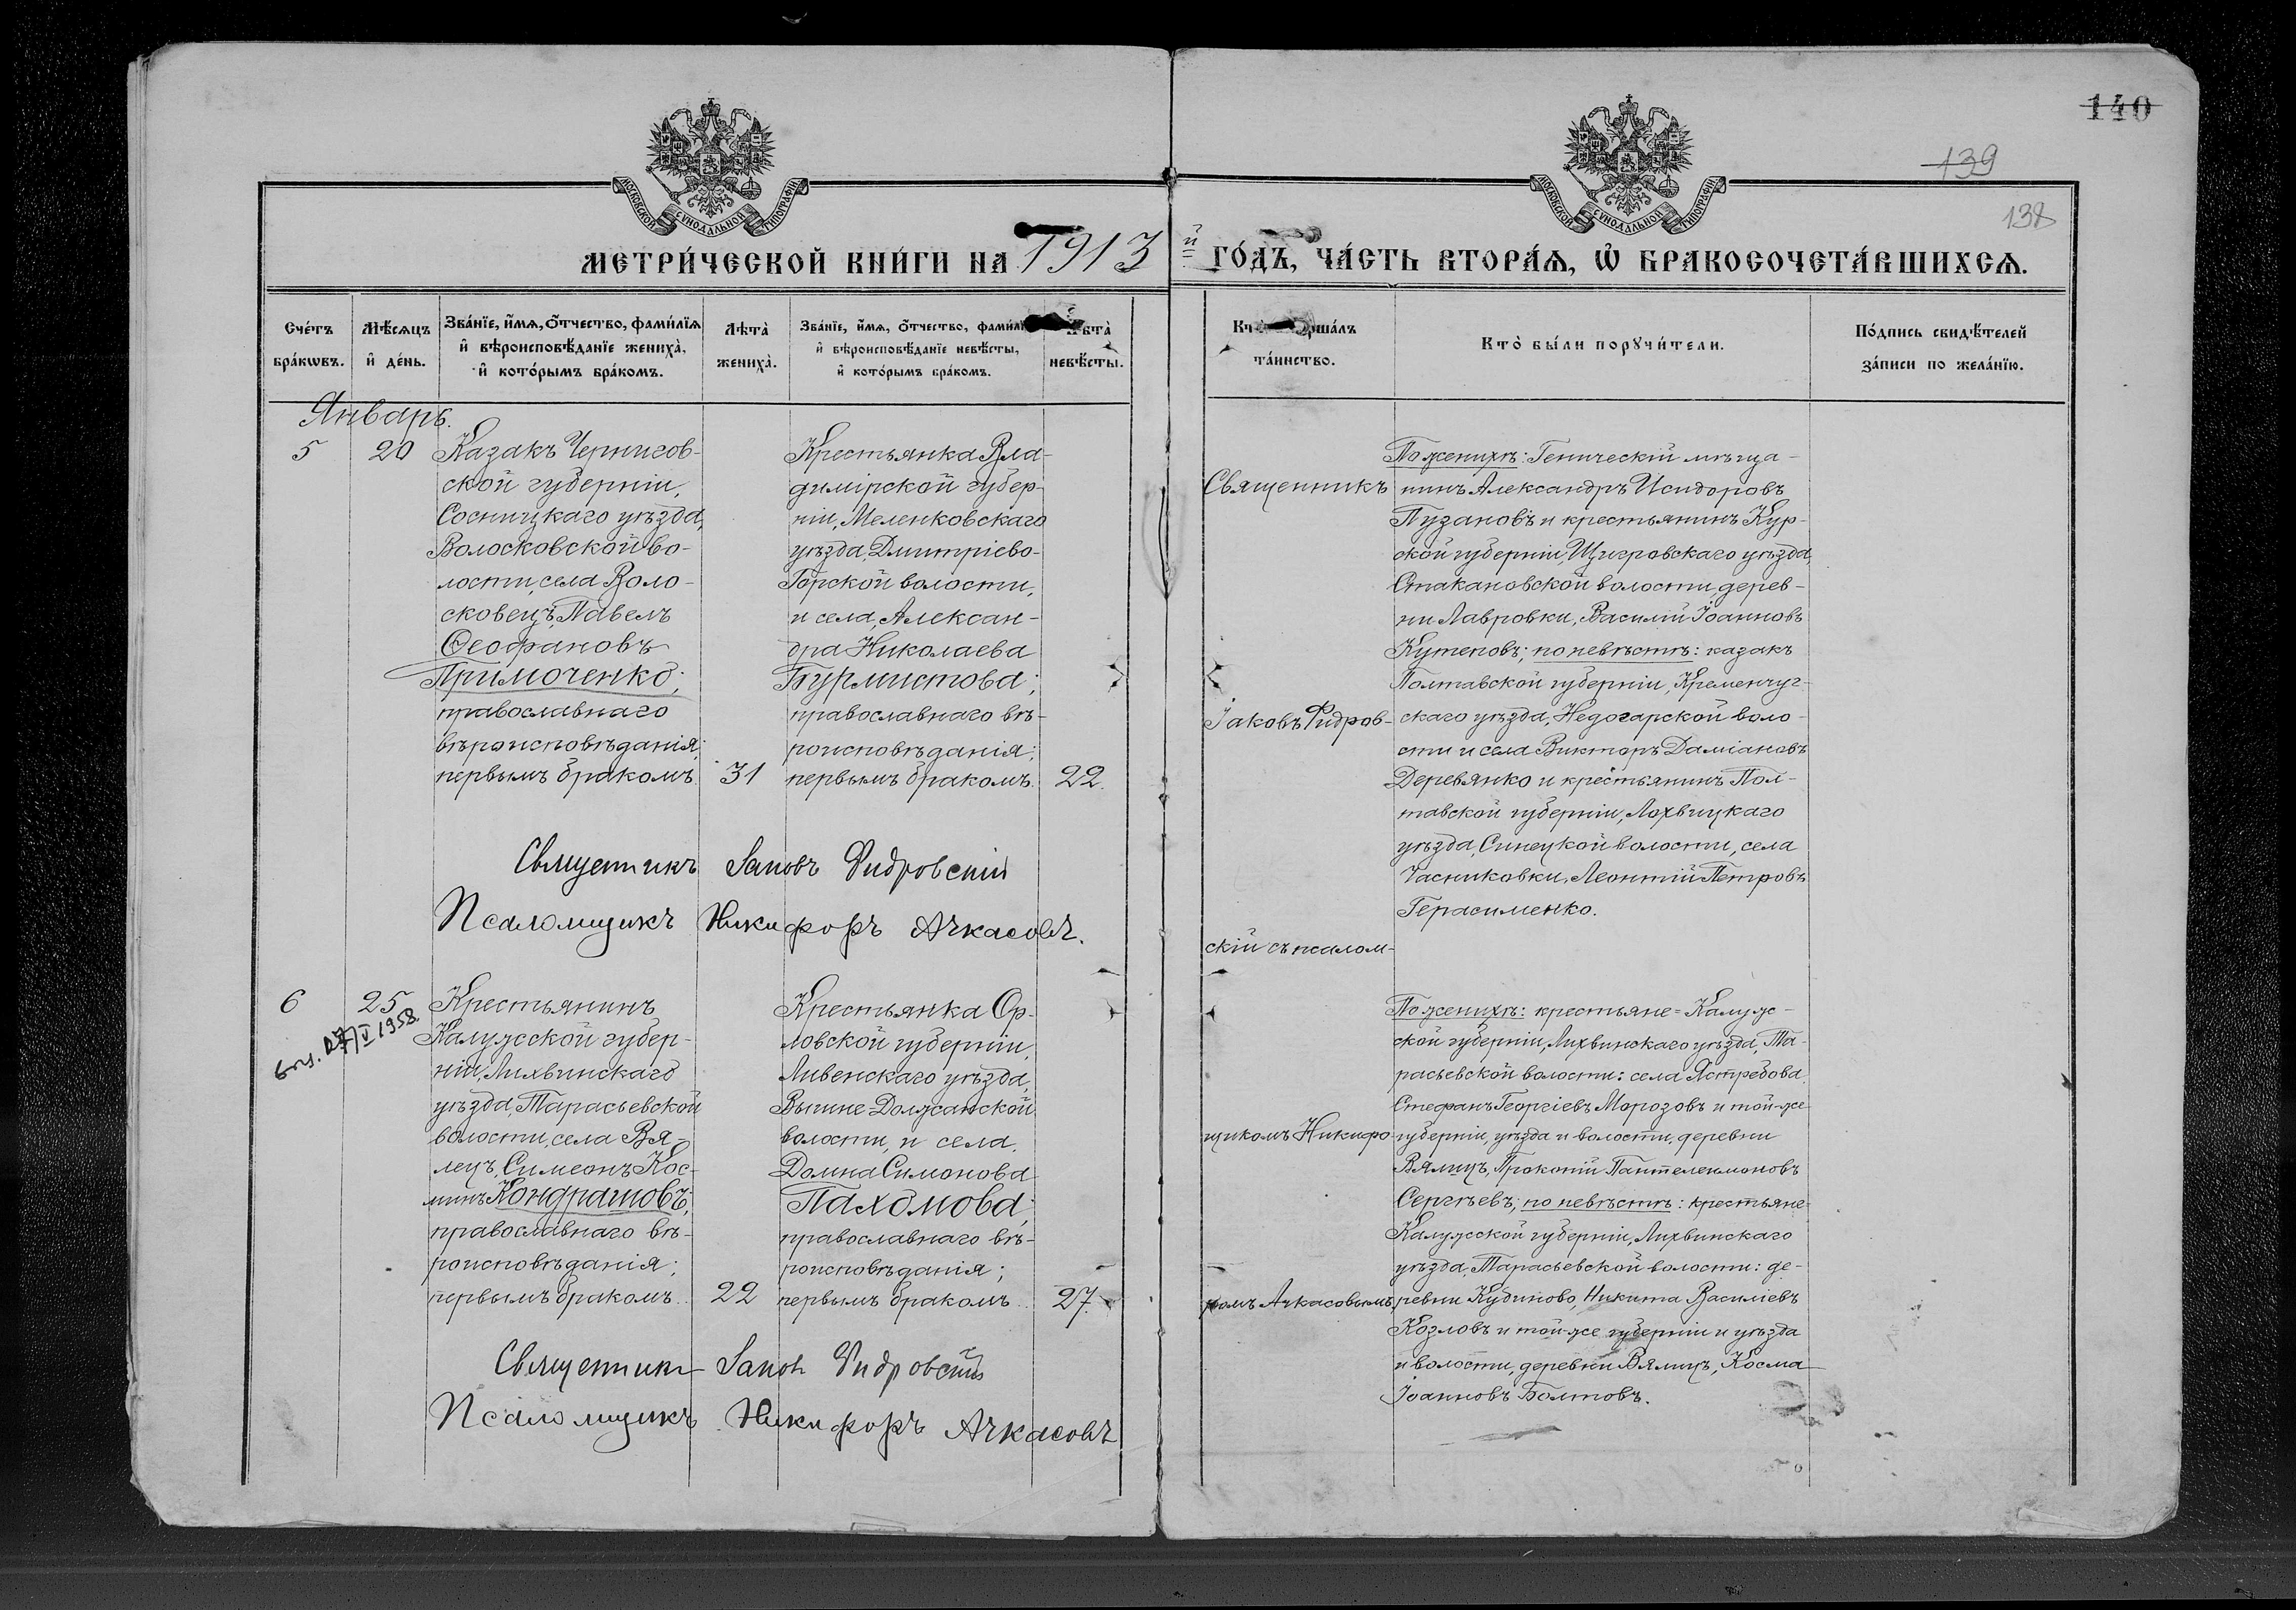 140
139
138
МОСКОВСКОЙ СѴНОДАЛЬНОЙ ТИПОГРАФІИ
МОСКОВСКОЙ СѴНОДАЛЬНОЙ ТИПОГРАФІИ
МЕТРИ́ЧЕСКОЙ КНИ́ГИ НА 1913 й ГО́ДЪ, ЧА́СТЬ ВТОРА́Ѧ, Ѡ҆ БРАКОСОЧЕТА́ВШИХСѦ.
Сче́тъ
бра́кѡвъ.
Мѣ́сѧцъ
и҆ де́нь.
Зва́нїе, и҆́мѧ, ѻ҆́тчество, фами́лїѧ
и҆ вѣроисповѣ́данїе жениха̀,
и҆ кото́рымъ бра́комъ.
Лѣта̀
жениха̀.
Зва́нїе, и҆́мѧ, ѻ҆́тчество, фами́лї
и҆ вѣроисповѣ́данїе невѣ́сты,
и҆ кото́рымъ бра́комъ.
ѣта̀
невѣ́сты.
Кт ерша́лъ
та́инство.
Кто̀ бы́ли порꙋчи́тели.
По́дпись свидѣ́телей
за́писи по жела́нїю.
Январь.
5
20
Казакъ Чернигов-
ской губерніи,
Сосницкаго уѣзда,
Волосковской во-
лости, села Воло-
сковецъ, Павелъ
Ѳеофановъ
Примоченко;
православнаго
вѣроисповѣданія;
первымъ бракомъ.
31
Крестьянка Вла-
димірской губер-
ніи, Меленковскаго
уѣзда, Дмитріево-
Горской волости,
и села, Алексан-
дра Николаева
Бурмистова;
православнаго вѣ-
роисповѣданія;
первымъ бракомъ.
22.
Священникъ Іаковъ Фидровскій
Псаломщикъ Никифоръ Ачкасовъ.
Священникъ
Іаковъ Фидров-
скій съ псалом-
щикомъ Никифо-
ромъ Ачкасовымъ.
По женихѣ: Геническій мѣща-
нинъ Александръ Исидоровъ
Пузановъ и крестьянинъ Кур-
ской губерніи, Щигровскаго уѣзда,
Стакановской волости, дерев-
ни Лавровки, Василій Іоанновъ
Кутеповъ; по невѣстѣ: казакъ
Полтавской губерніи, Кременчуг-
скаго уѣзда, Недогарской воло-
сти и села Викторъ Даміановъ
Деревянко и крестьянинъ Пол-
тавской губерніи, Лохвицкаго
уѣзда, Синецкой волости, села
Часниковки, Леонтій Петровъ
Герасименко.
6
25
27/V 1958.
Крестьянинъ
Калужской губер-
ніи, Лихвинскаго
уѣзда, Тарасьевской
волости, села Вя-
лецъ, Симеонъ Кос-
минъ Кондрашовъ;
православнаго вѣ-
роисповѣданія;
первымъ бракомъ.
22
Крестьянка Ор-
ловской губерніи,
Ливенскаго уѣзда,
Вышне-Должанской
волости, и села,
Домна Симонова
Пахомова;
православнаго вѣ-
роисповѣданія;
первымъ бракомъ.
27.
Священникъ Іаковъ Фидровскій
Псаломщикъ Никифоръ Ачкасовъ
По женихѣ: крестьяне=Калуж-
ской губерніи, Лихвинскаго уѣзда, Та-
расьевской волости: села Ястребова
Стефанъ Георгіевъ Морозовъ и той-же
губерніи, уѣзда и волости, деревни
Вялицъ, Прокопій Пантелеимоновъ
Сергѣевъ; по невѣстѣ: крестьяне=
Калужской губерніи, Лихвинскаго
уѣзда, Тарасьевской волости: де-
ревни Кудиново, Никита Василіевъ
Козловъ и той-же губерніи и уѣзда
и волости, деревни Вялицъ, Косма
Іоанновъ Болтовъ.